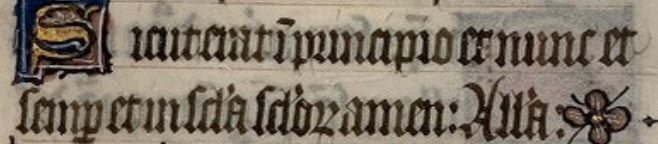 Sicut erat ī principio et nunc et
semꝑ et in scl̄a scl̄oꝝ amen: All̄a: